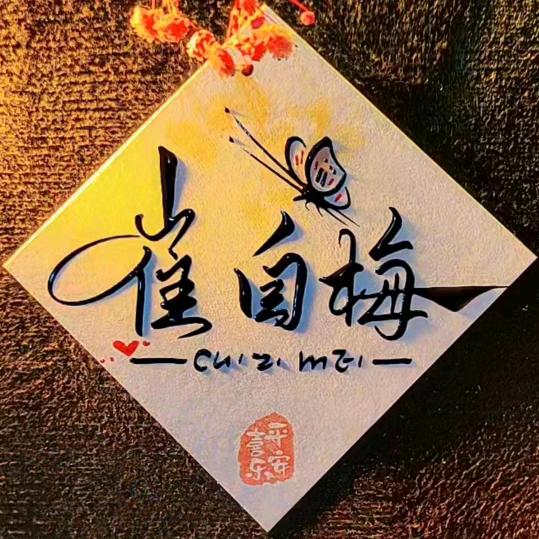 崔自梅
cui zi mei
平安
喜乐